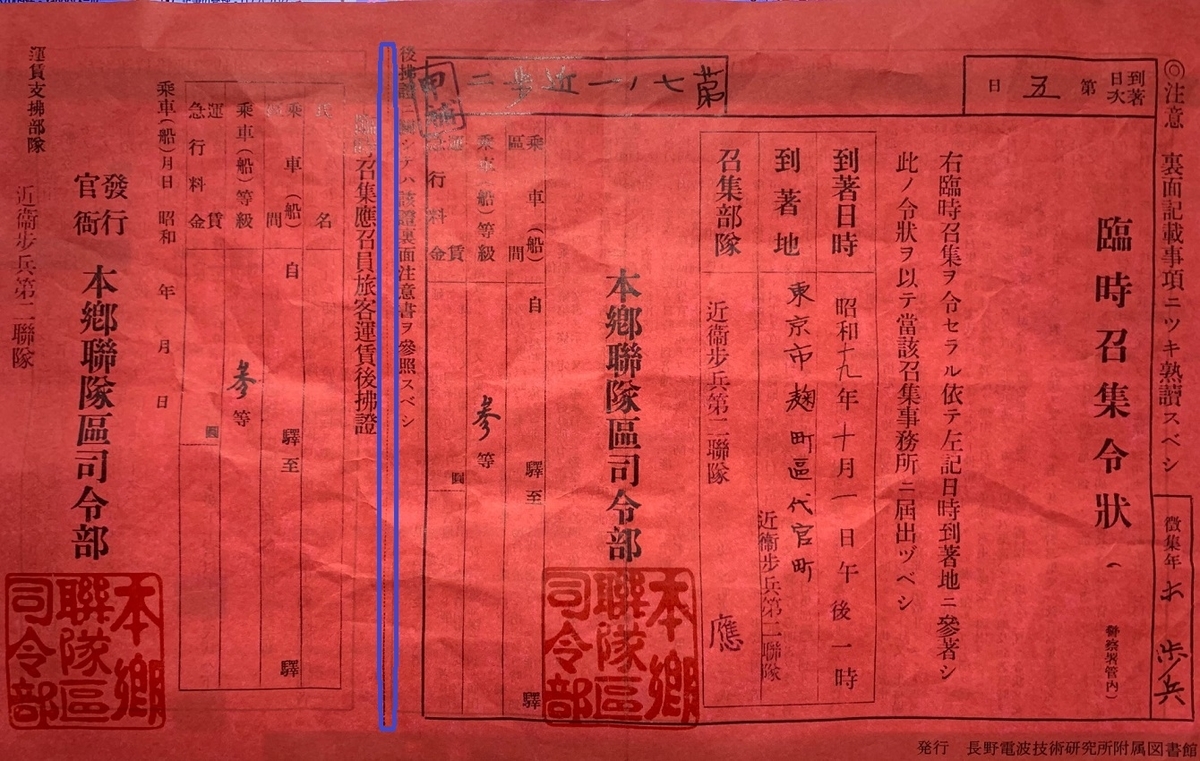 ◎注意 裏面記載事項ニツキ熟讀スベシ
徴集年 歩兵
臨時召集令狀
(警察署管内)
右臨時召集ヲ令セラル依テ左記日時到著地ニ參著シ
此ノ令狀ヲ以テ當該召集事務所ニ屆出ヅベシ
到著日次 第五日
到著日時 昭和十九年十月一日午後一時
到著地 東京市麴町區代官町
近衞步兵第二聯隊
召集部隊 近衞步兵第二聯隊
應
第七ノ一近歩二
本鄕聯隊區司令部
本鄕聯隊區司令部
乘車(船)區間 自 驛至 驛
乘車(船)等級 參等
運賃
急行料金 圓
後拂證ニ關シテハ該證裏面注意書ヲ參照スベシ
臨時召集應召員旅客運賃後拂證
氏名
乘車(船)區間 自 驛至 驛
乘車(船)等級 參等
運賃
急行料金 圓
乘車(船)月日 昭和 年 月 日
發行官衙 本鄕聯隊區司令部
本鄕聯隊區司令部
運賃支拂部隊 近衞步兵第二聯隊
発行 長野電波技術研究所附属図書館